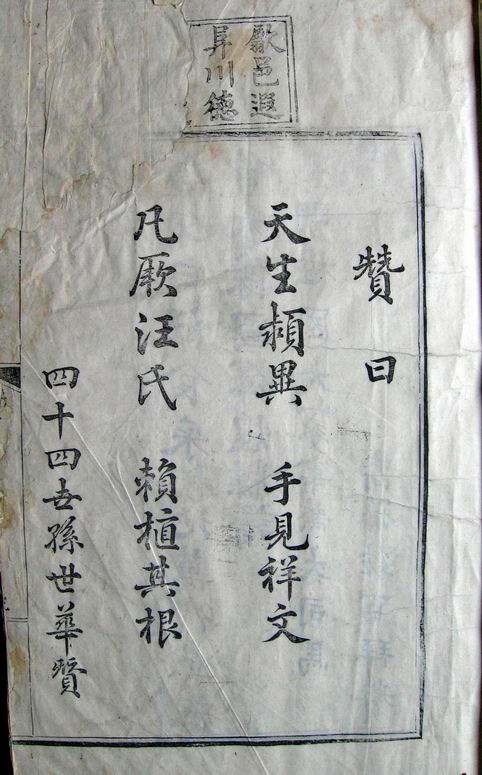 歙邑遐
川德
贊曰
天生頴異　手見祥文
凡厥汪氏　賴植其根
四十四世孫世華賛